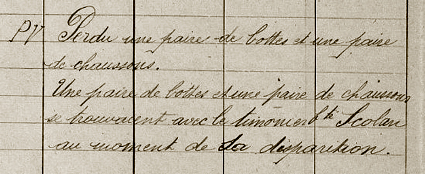 PV Perdu une paire de bottes et une paire
de chaussons.
Une paire de bottes et une paire de chaussons
se trouvaient avec le timonier Bté Scolan
au moment de sa disparition.